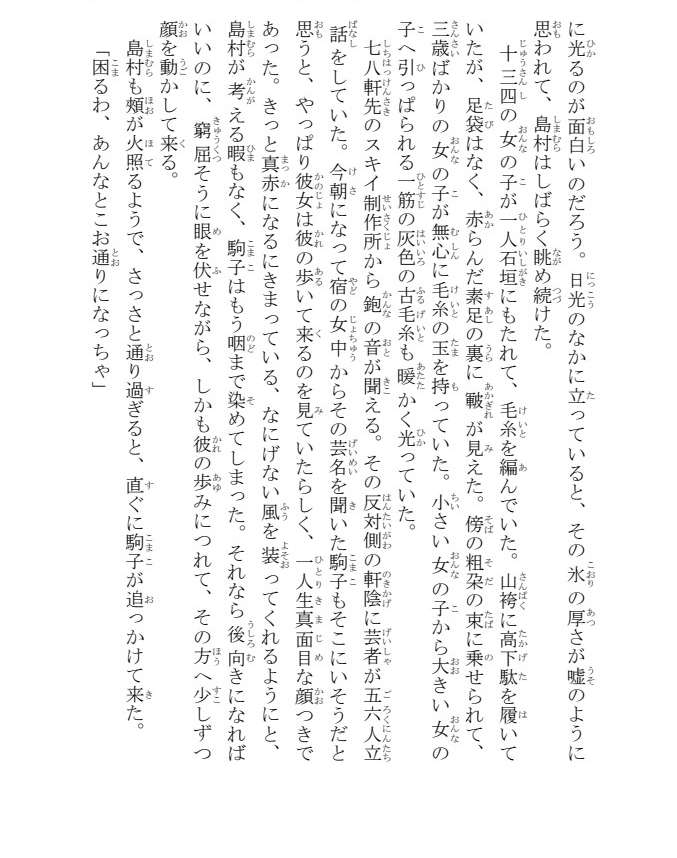 に光るのが面白いのだろう。日光のなかに立っていると、その氷の厚さが嘘のように
思われて、島村はしばらく眺め続けた。
十三四の女の子が一人石垣にもたれて、毛糸を編んでいた。山袴に高下駄を履いて
いたが、足袋はなく、赤らんだ素足の裏に皸が見えた。傍の粗朶の束に乗せられて、
三歳ばかりの女の子が無心に毛糸の玉を持っていた。小さい女の子から大きい女の
子へ引っぱられる一筋の灰色の古毛糸も暖かく光っていた。
七八軒先のスキイ制作所から鉋の音が聞える。その反対側の軒陰に芸者が五六人立
話をしていた。今朝になって宿の女中からその芸名を聞いた駒子もそこにいそうだと
思うと、やっぱり彼女は彼の歩いて来るのを見ていたらしく、一人生真面目な顔つきで
あった。きっと真赤になるにきまっている、なにげない風を装ってくれるようにと、
島村が考える暇もなく、駒子はもう咽まで染めてしまった。それなら後向きになれば
いいのに、窮屈そうに眼を伏せながら、しかも彼の歩みにつれて、その方へ少しずつ
顔を動かして来る。
島村も頰が火照るようで、さっさと通り過ぎると、直ぐに駒子が追っかけて来た。
「困るわ、あんなとこお通りになっちゃ」